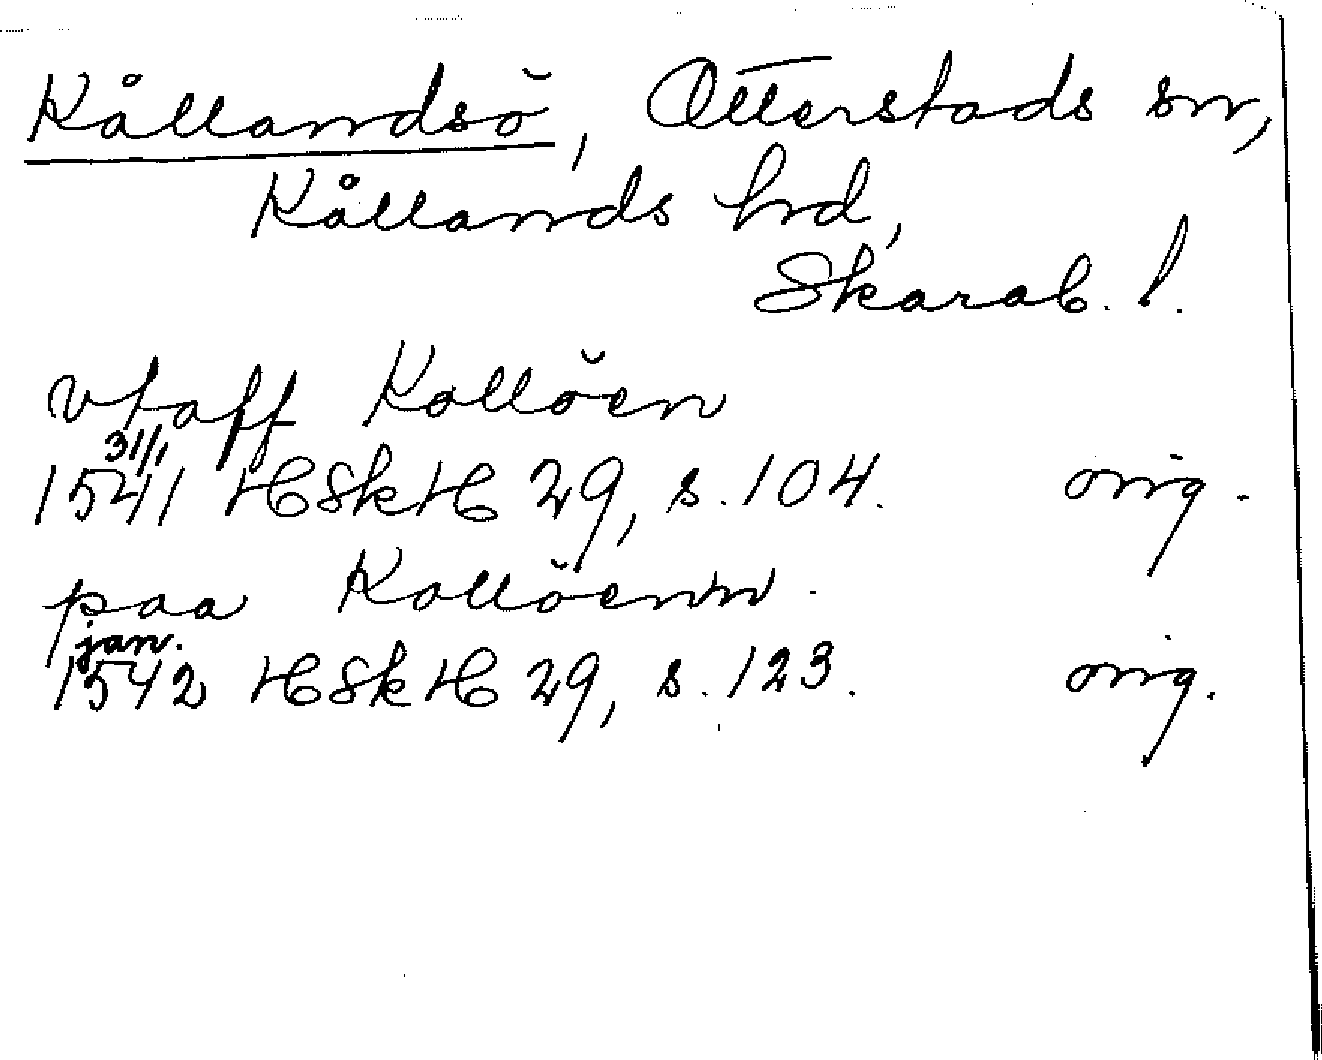 Kållandsö, Otterstads sn,
Kållands hrd,
Skarab. l.
vtaff Kollöen
31/1
1541 HSkH 29, s. 104. orig.
paa Kollöenn.
jan.
1542 HSkH 29, s. 123. orig.